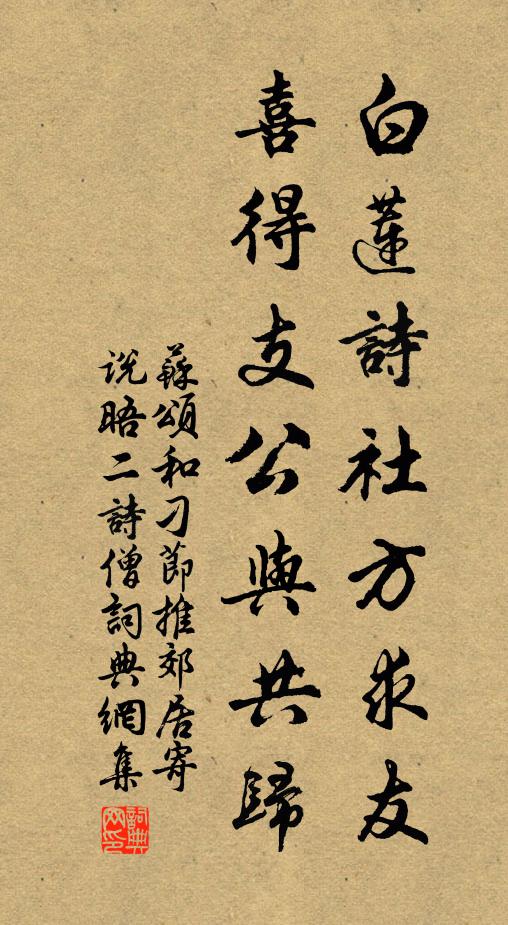 白蓮詩社方求友
喜得支公與共歸
蘇頌和刁節推郊居寄
説晤二詩僧詞典網集
詞典网印